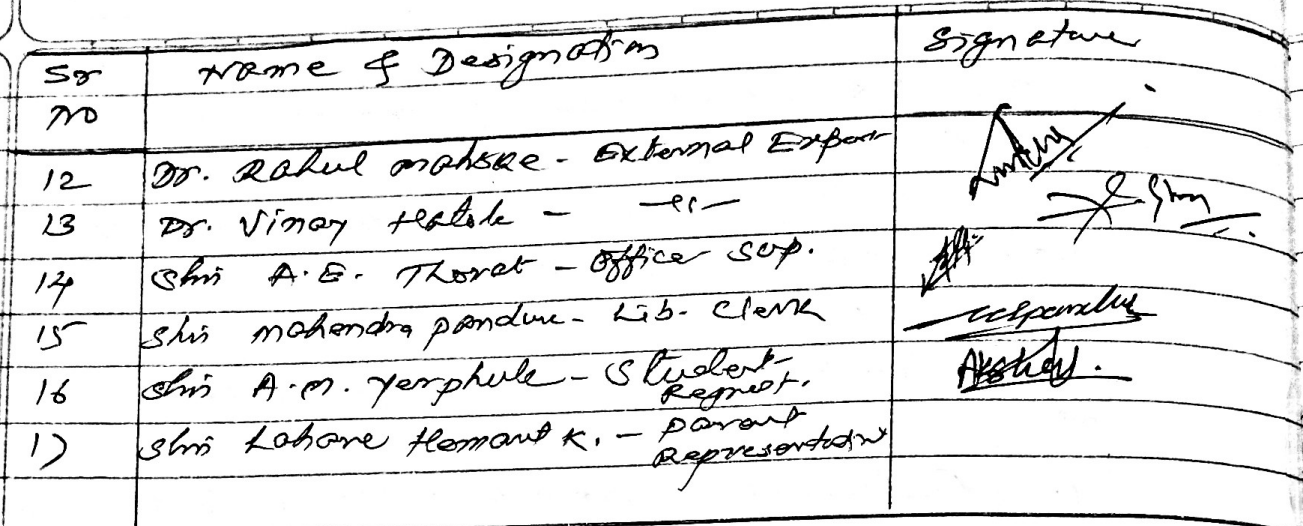 Sr Name & Designation Signature
No
12 Dr. Rahul Mahske - External Expert
13 Dr. Vinay Hatole - -"-
14 Shri A.E. Thorat - Office Sup.
15 Shri Mahendra Pandure - Lib. Clerk
16 Shri A.M. Yerphule - Student Akshay.
Represt.
17 Shri Lahare Hemant K. - Parent
Representative